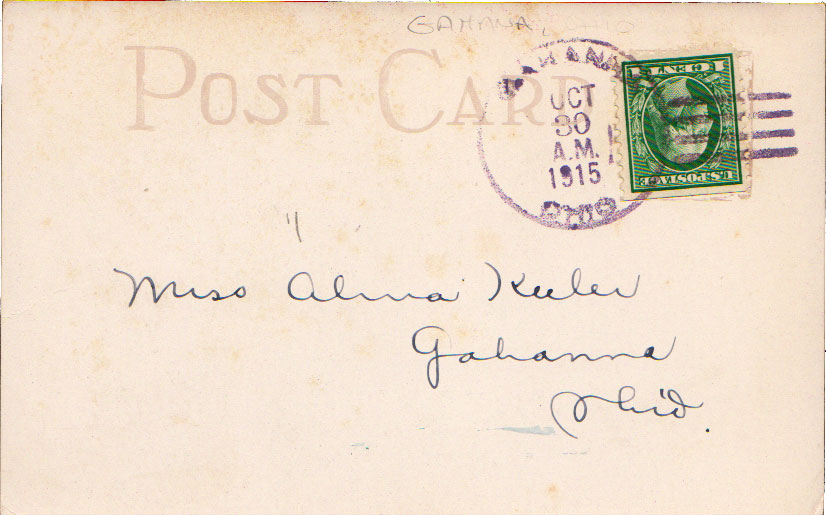 GAHANA,
POST CARD
GAHANNA
OCT
30
A.M.
1915
OHIO
1 CENT 1
U.S. POSTAGE
Miss Alma Keeler
Gahanna
Ohio.